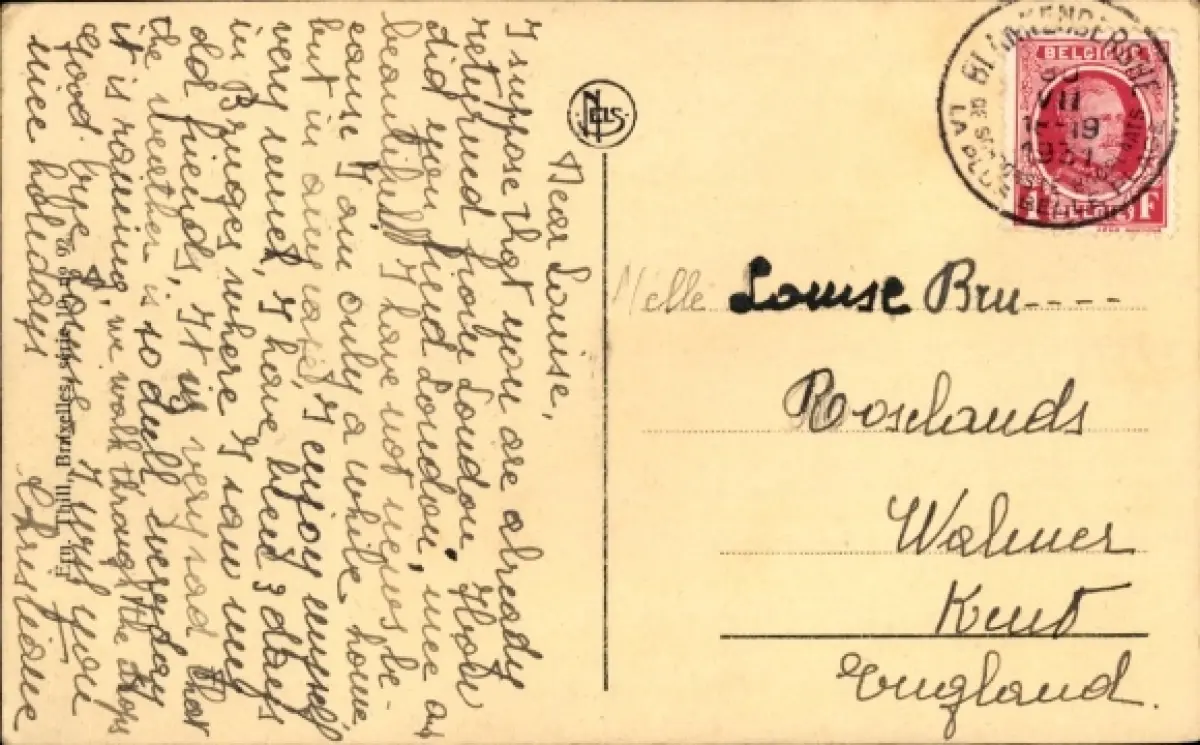 Dear Louise,
I suppose that you are already
returned from London. How
did you find London, nice or
beautiful? I have not news be-
cause I am only a while home,
but in any case, I enjoy myself
very much, I have been 3 days
in Bruges where I saw my
old friends, It is very sad that
the weather is so dull, every day
it is raining, we walk through the shops
Good bye Louise I wish you
nice holidays
Christiane
Ern. Thill, Bruxelles, série
NELS
BLANKENBERGHE
VII
1931
BELGIQUE
F
Melle Louise Bru----
Roselands
Walmer
Kent
England.